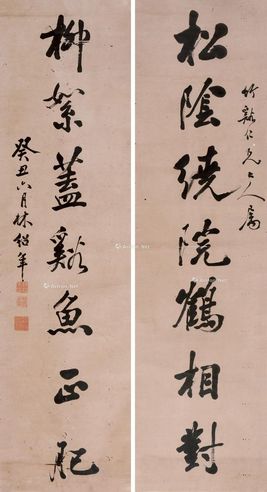 竹谿仁兄大人属
松陰繞院鶴相對
柳絮蓋谿魚正肥
癸丑六月林紹年